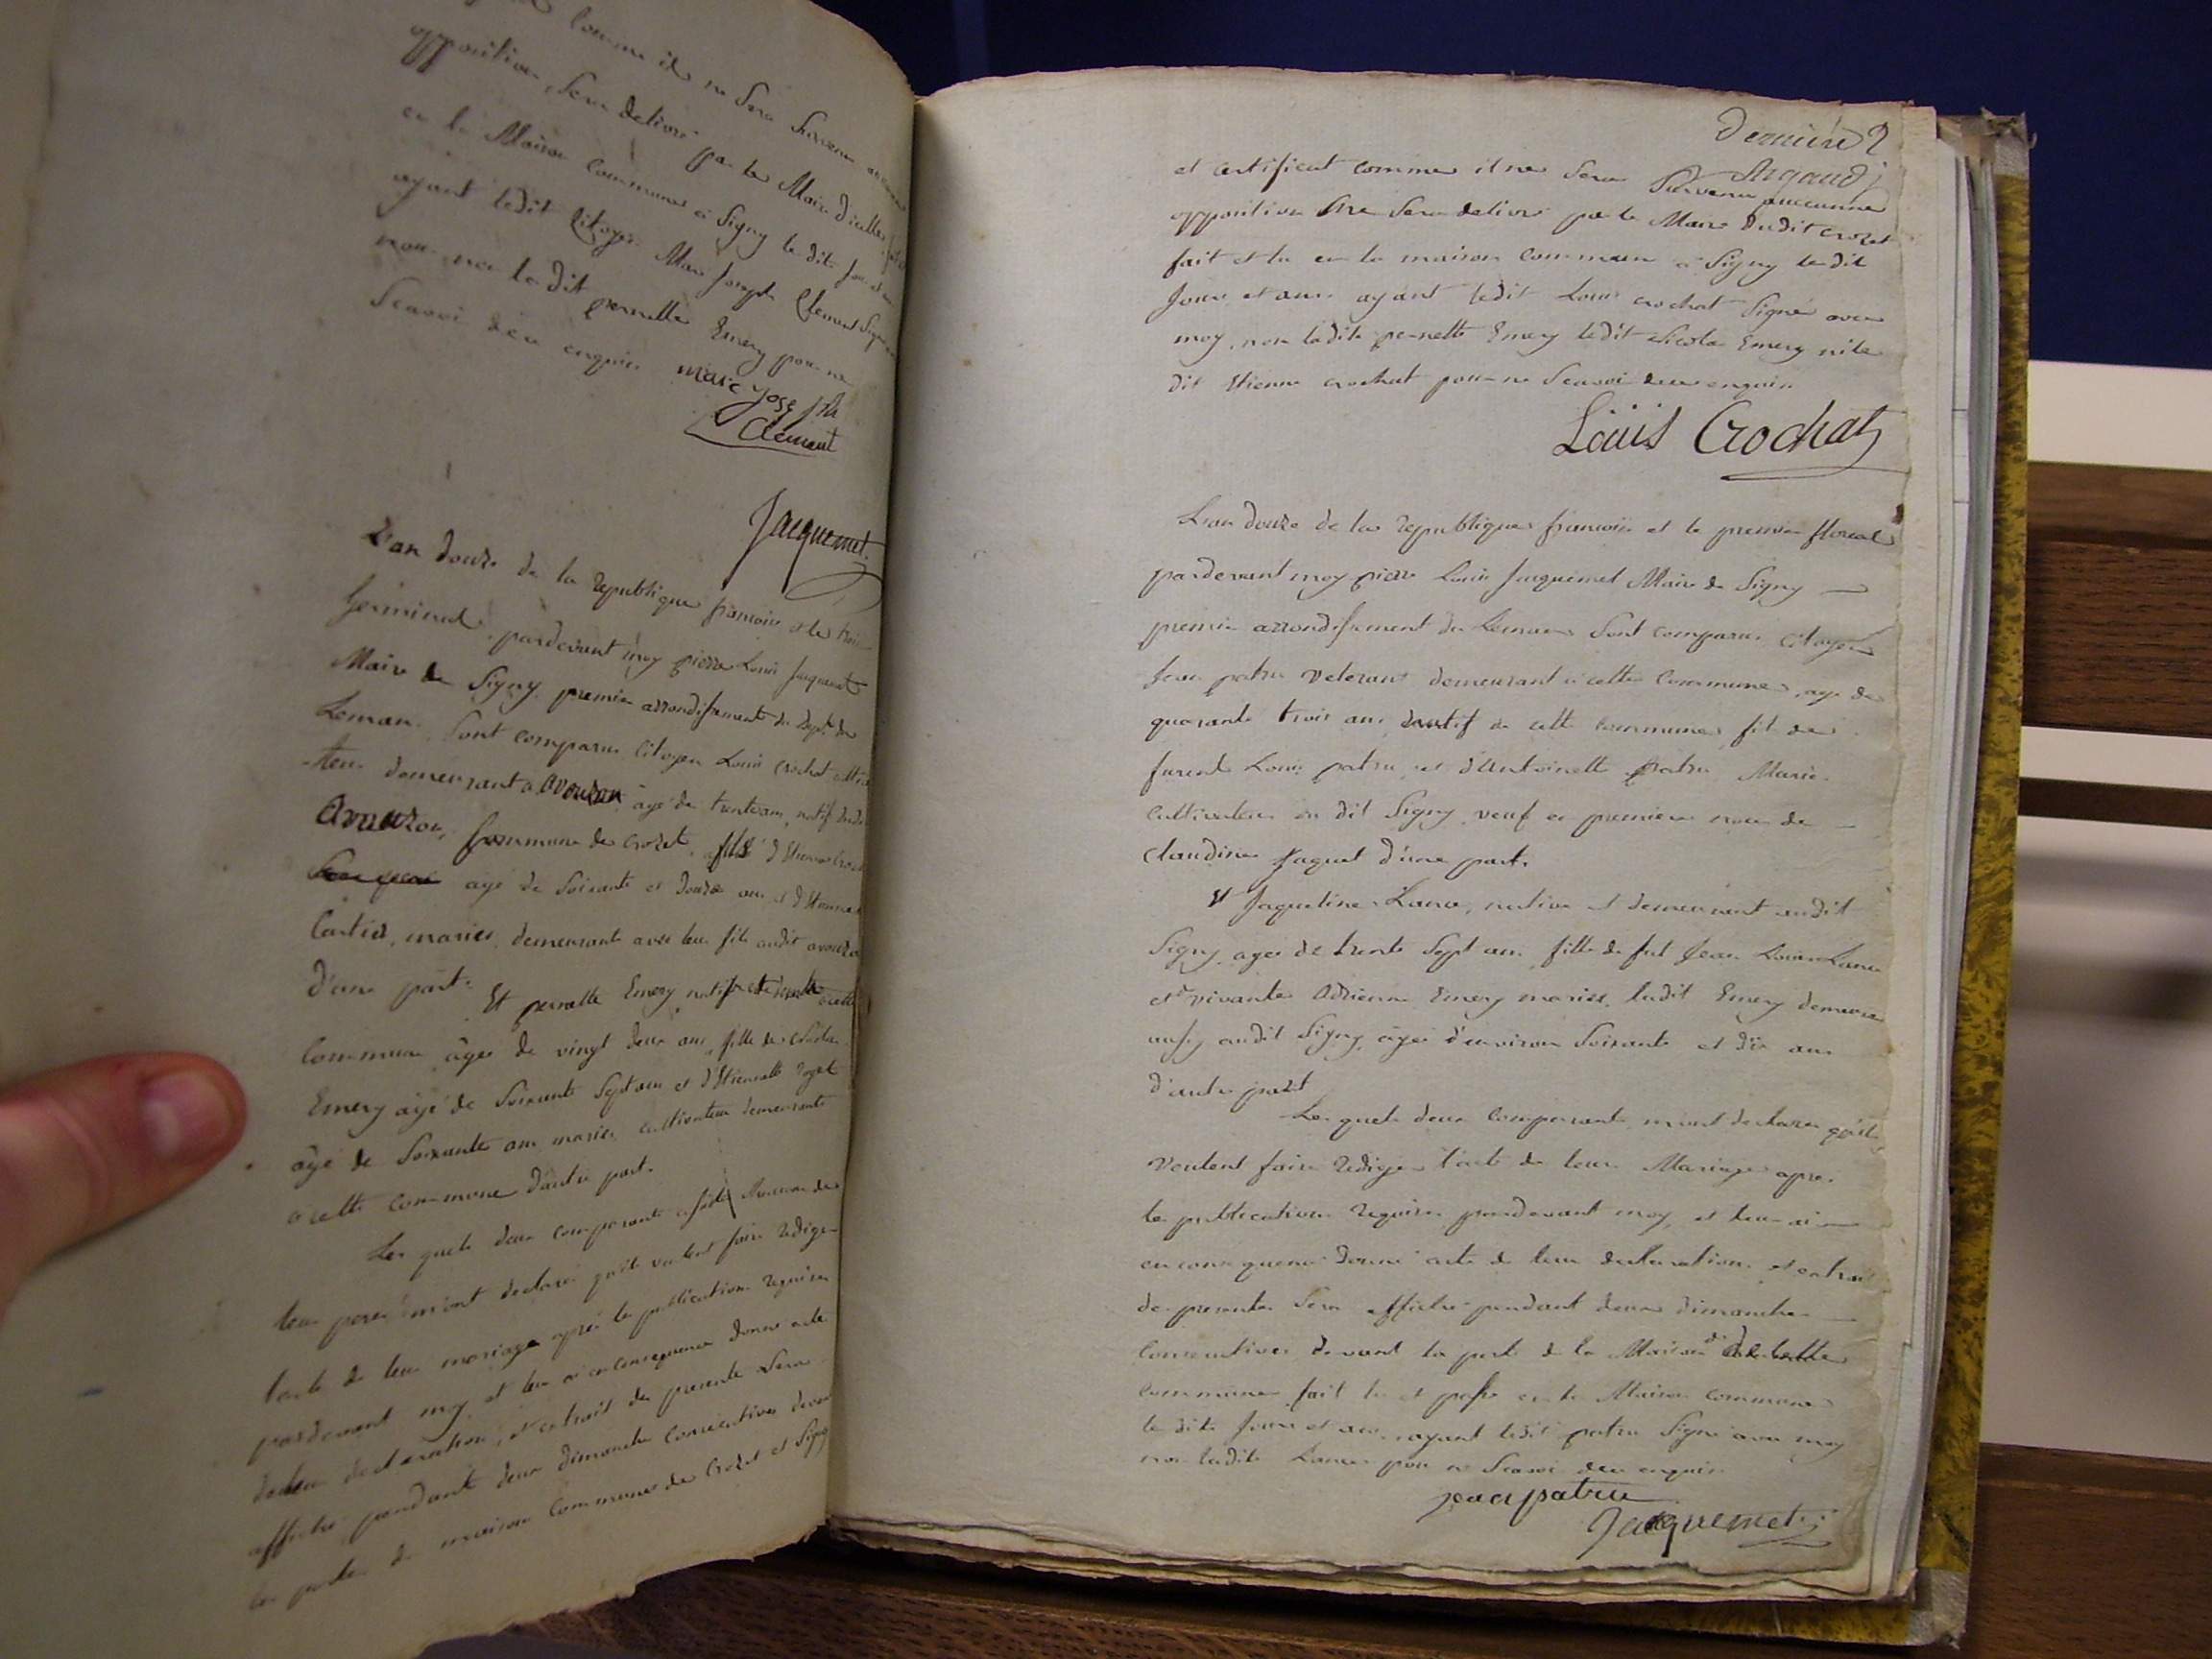 comme il ne sera survenu aucune
opposition, sera delivré par le Maire d'icelles, fait
en la Maison commune à Signy le dit jour et an
ayant ledit Citoyen Marc Joseph Clement signé
non ladite pernette Emery pour ne
scavoir de ce enquise
marc Joseph
Clement
Jacquemet
L'an douze de la republique francoise et le trois
Germinal, pardevant moy pierre Louis Jacquemet
Maire de Signy premier arrondissement du dept. du
Leman. Sont comparus Citoyen Louis Crochat cultiva
-teur demeurant a avouzon agé de trente ans, natif dudit
avouzon, commune de Crozet, fils d'Etienne Crochat
agé de soixante et douze ans et d'Etiennette
Cartier, mariés, demeurants avec leur fils audit avouzon
d'une part.
Et pernette Emery native et demeurante a cette
Commune âgée de vingt deux ans, fille de Nicolas
Emery âgé de soixante sept ans et d'Etiennette
âgé de soixante ans mariés, cultivateur demeurants
a cette commune d'autre part.
Les quels deux comparants assistés chacun de
leur pere, m'ont declaré qu'ils veulent faire rediger
l'acte de leur mariage aprés les publications requises
pardevant moy, et leur ai en consequence donné acte
de leur declaration, et extrait des presentes sera
affiché pendant deux dimanches consécutives devant
les portes de maison communes de Crozet et Signy
derniére
Argaud
et certificat comme il ne sera survenu auccunne
opposition sera delivré par le Maire dudit crozet
fait et lu en la maison commune a Signy ledit
Jour et an. ayant ledit Louis crochat Signé avec
moy, non ladite pernette Emery ledit Nicolas Emery ni le
dit Etienne crochat pour ne scavoir de ce enquis
Louis Crochat
L'an douze de la republique francoise et le premier floreal
pardevant moy pierre Louis Jacquemet Maire de Signy
premier arrondissement du Leman sont comparus citoyen
Jean patru veterant demeurant a cette commune, agé de
quarante trois ans, natif de cette commune, fils de
furent Louis patru et d'Antoinette patru Mariés
cultivateur au dit Signy, veuf en premiere noce de
claudine Jaquet d'une part.
Et Jaqueline Lance, native et demeurant audit
Signy, agée de trente sept ans fille de fut Jean Louis Lance
et de vivante Adrienne Emery mariés, ladit Emery demeure
aussy audit Signy, agée d'environ soixante et dix ans
d'autre part
Les quels deux comparants m'ont declarés qu'ils
veulent faire rediger l'acte de leur Mariage apres
les publications requises pardevant moy, et leur ai
en consequence donné acte de leur declaration et extrait
des presentes sera affiché pendant deux dimanches
consecutives devant la porte de la Maison de cette
commune fait lu et passé en la Maison commune
le dits Jour et an. ayant ledit patru Signé avec moy
non ladite Lance pour ne scavoir de ce enquise
jean patru
Jacquemet